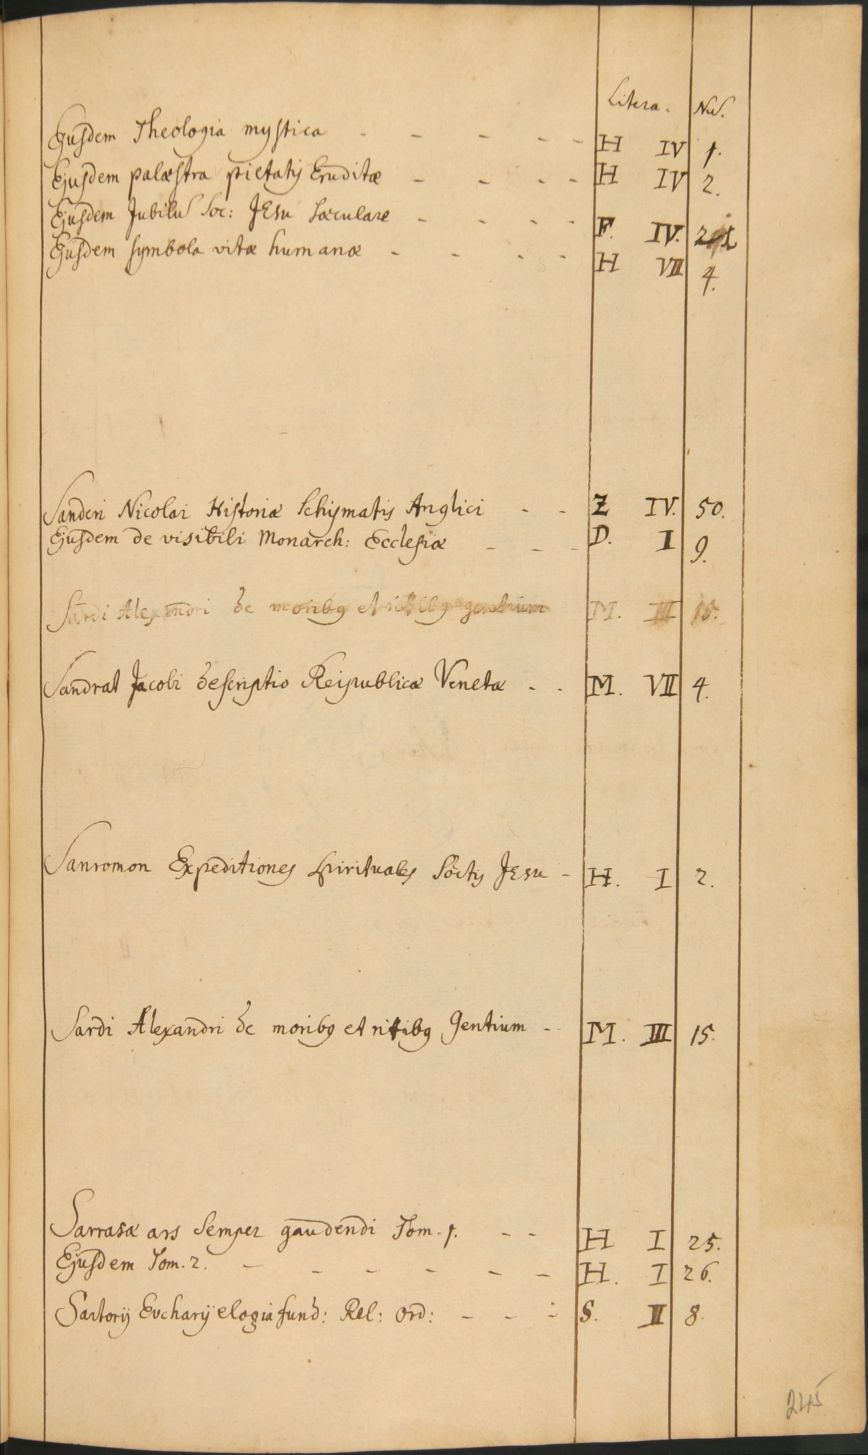 Litera. No.
Ejusdem Theologia mystica - - - - - H IV 1.
Ejusdem palæstra pietatis Eruditæ - - - - H IV 2.
Ejusdem Jubilus Soc: JEsu sæculare - - - - F. IV.
Ejusdem symbola vitæ humanæ - - - - H VII 4.
Sanderi Nicolai Historiæ Schismatis Anglici - - Z IV. 50.
Ejusdem de visibili Monarch: Ecclesiæ - - - D. I 9.
Sardi Alexandri de moribq et ritibq gentium M. III 15.
Sandrat Jacobi descriptio Reipublicæ Venetæ - - M. VII 4.
Sanromon Expeditiones spirituales Soctis JEsu - H. I 2.
Sardi Alexandri de moribq et ritibq Gentium - M. III 15.
Sarrasæ ars semper gaudendi Tom. 1. - - H I 25.
Ejusdem Tom. 2. - - - - - - H. I 26.
Sartorij Eucharij elogia fund: Rel: Ord: - - - S. II 8.
245